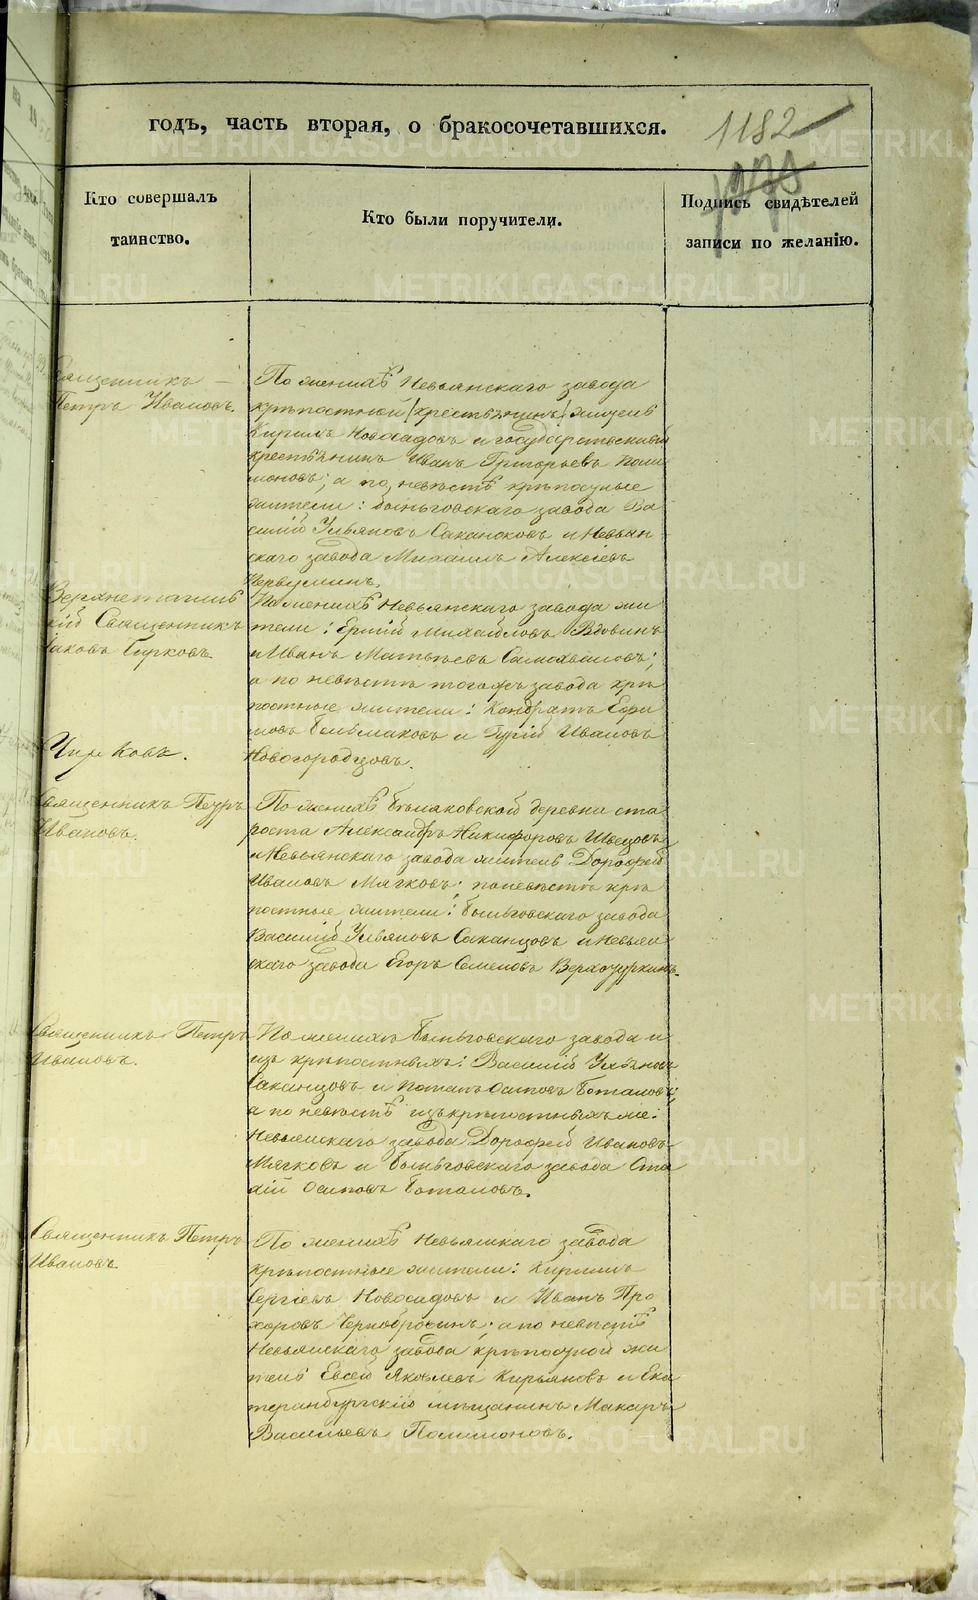 годъ, часть вторая, о бракосочетавшихся.
1182
Кто совершалъ таинство.
Кто были поручители.
Подпись свидѣтелей записи по желанію.
Священникъ
Петръ Ивановъ.
По женихѣ Невьянскаго завода
крѣпостной (крестьянинъ) житель
Кирилъ Новосадовъ и государственный
крестьянинъ Иванъ Григорьевъ Поли
моновъ; а по невѣстѣ крѣпостные
жители: Быньговскаго завода Ва
силій Ульяновъ Саканцовъ и Невьян
скаго завода Михаилъ Алексѣевъ
Первушинъ.
Верхнетагиль
скій Священникъ
Іаковъ Бирковъ.
По женихѣ Невьянскаго завода жи
тели: Ермій Михайловъ Вдовинъ
и Иванъ Матвѣевъ Самохваловъ;
а по невѣстѣ тогожъ завода крѣ
постные жители: Кондратъ Ефи
мовъ и Гурій Ивановъ
Новогородцовъ.
Священникъ Петръ
Ивановъ.
По женихѣ деревни ста
роста Александръ Никифоровъ Швецовъ
и Невьянскаго завода житель Дорофей
Ивановъ Мягковъ; по невѣстѣ крѣ
постные жители: Быньговскаго завода
Василій Ульяновъ Саканцовъ и Невьян
скаго завода Егоръ Семеновъ
Священникъ Петръ
Ивановъ.
По женихѣ Быньговскаго завода и
изъ крѣпостныхъ: Василій Ульяновъ
Саканцовъ и Потапъ Осиповъ Боталовъ;
а по невѣстѣ изъ крѣпостныхъ же:
Невьянскаго завода Дорофей Ивановъ
Мягковъ и Быньговскаго завода
Осиповъ Боталовъ.
Священникъ Петръ
Ивановъ.
По женихѣ Невьянскаго завода
крѣпостные жители: Кирилъ
Сергѣевъ Новосадовъ и Иванъ Про
хоровъ а по невѣстѣ
Невьянскаго завода крѣпостной жи
тель Евсей Яковлевъ Кирьяновъ и Ека
теринбургскій мѣщанинъ Макаръ
Васильевъ Полимоновъ.
METRIKI.GASO-URAL.RU